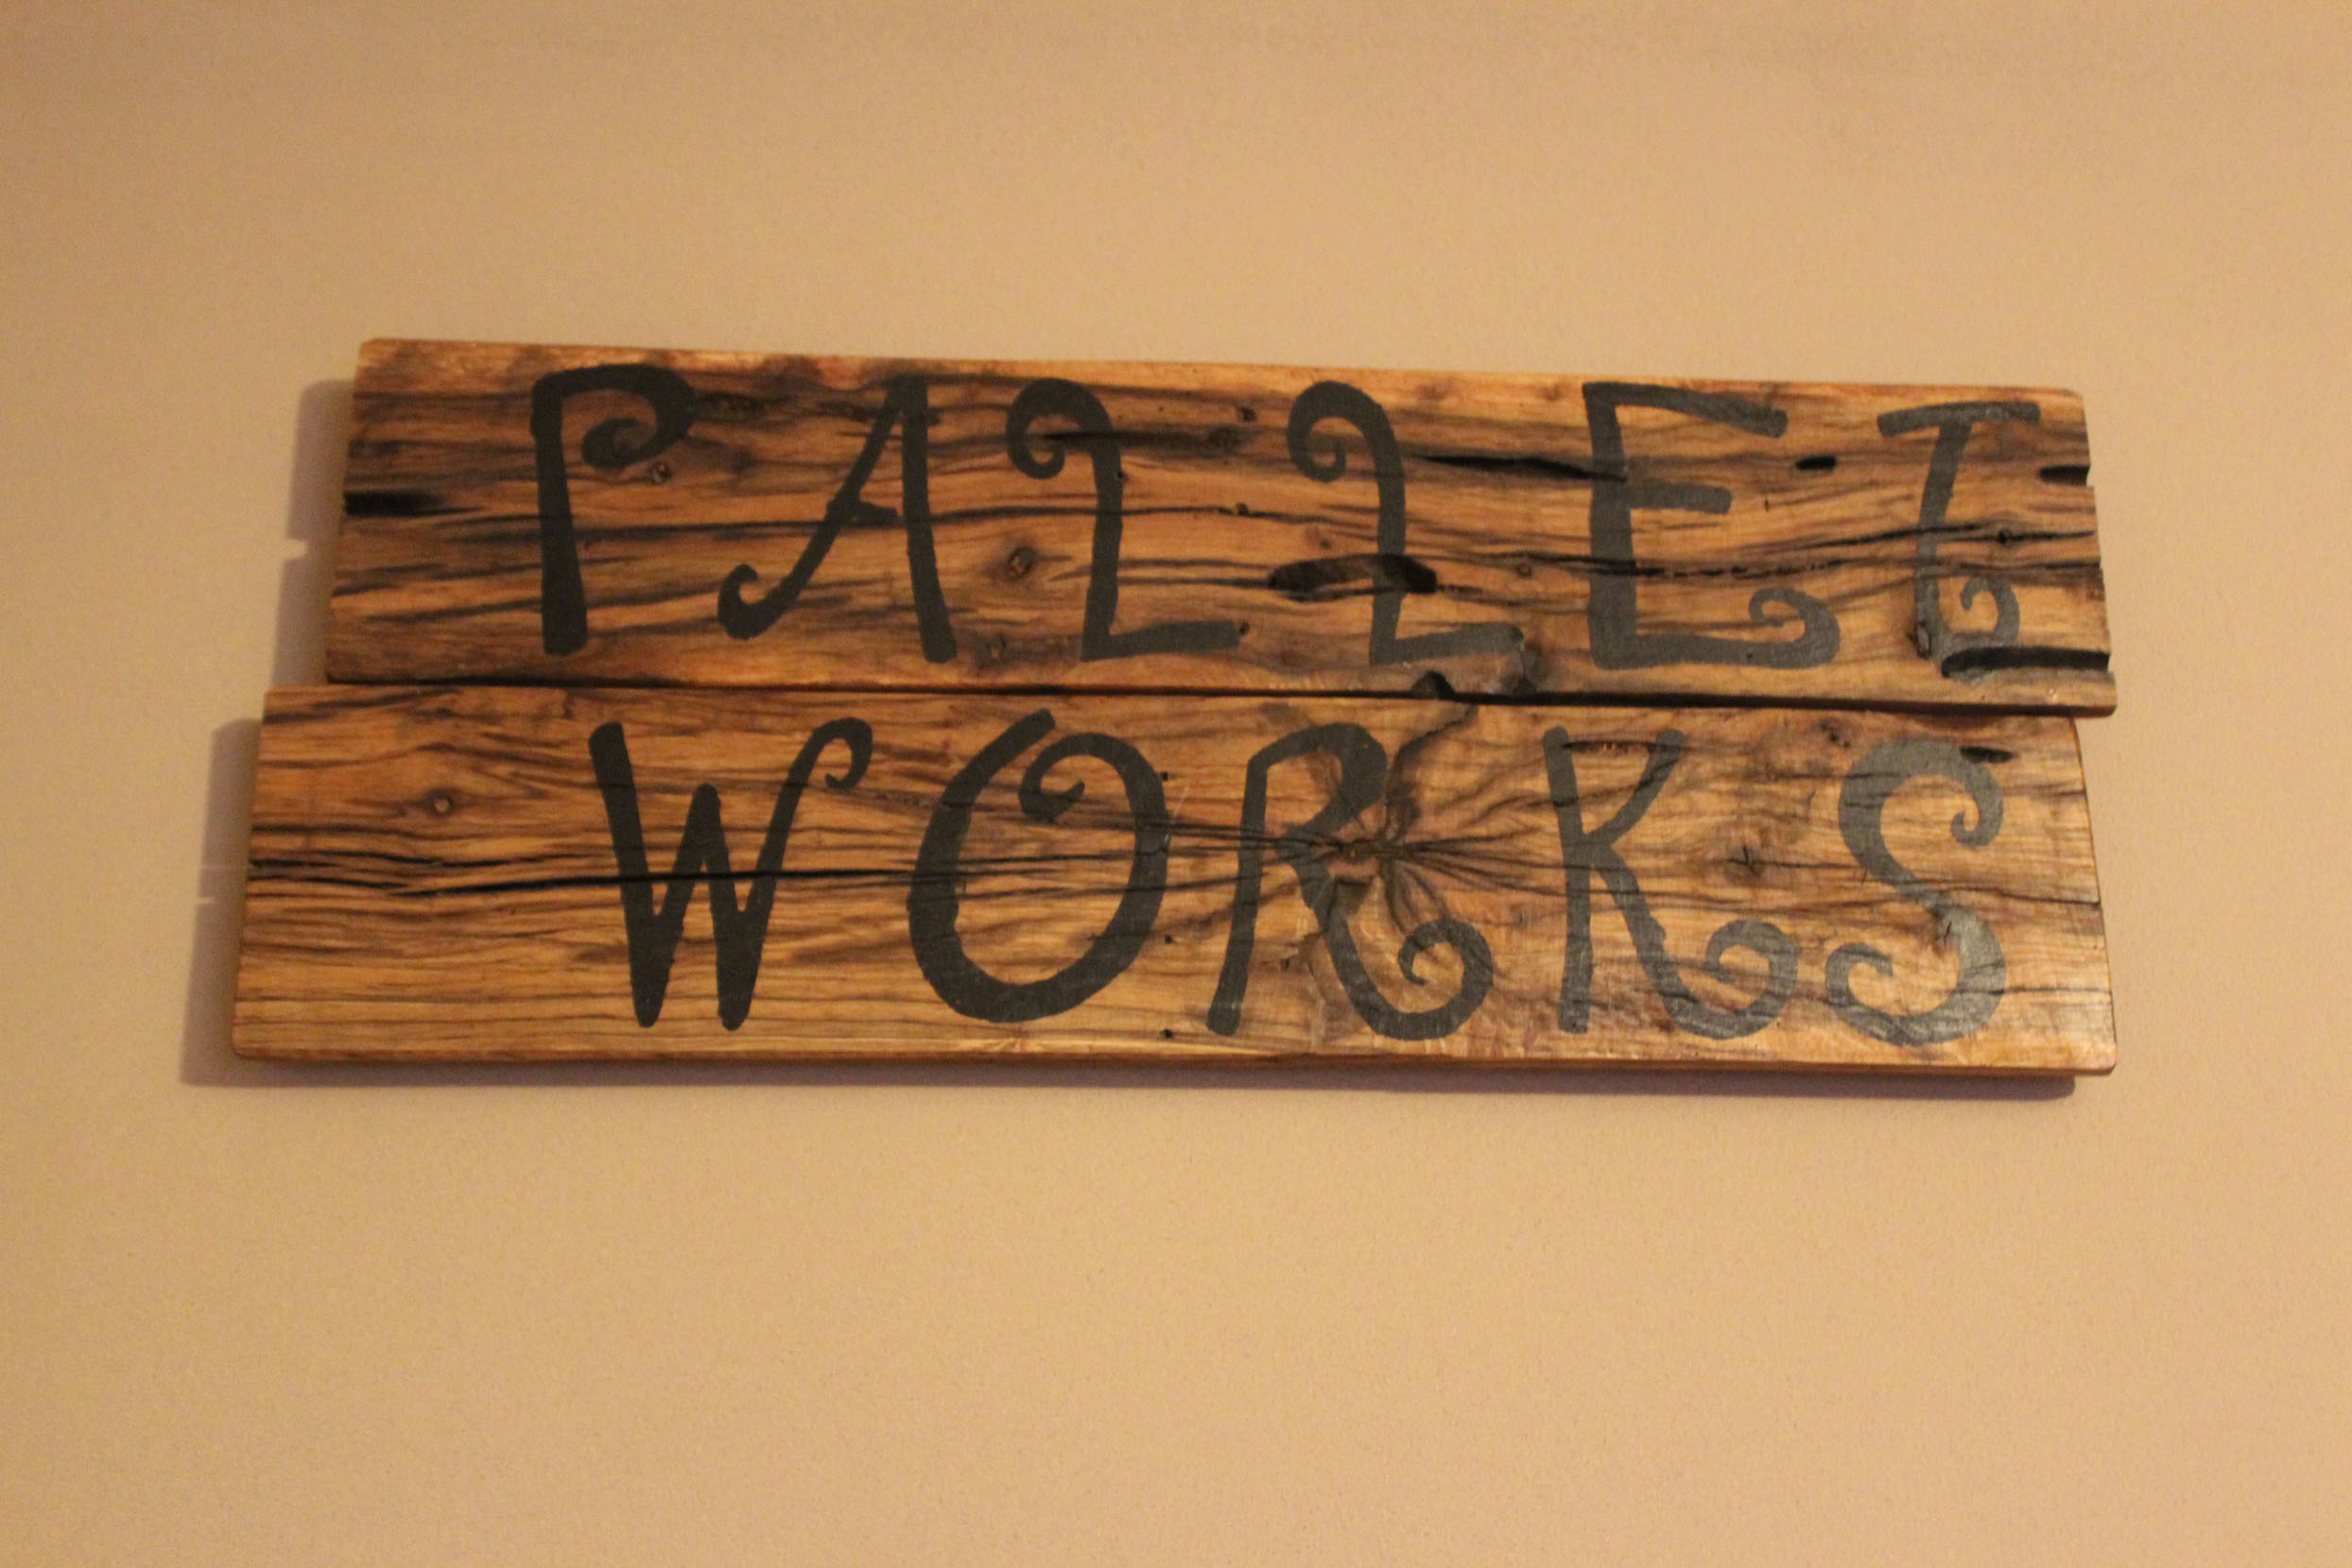 PALLET
WORKS